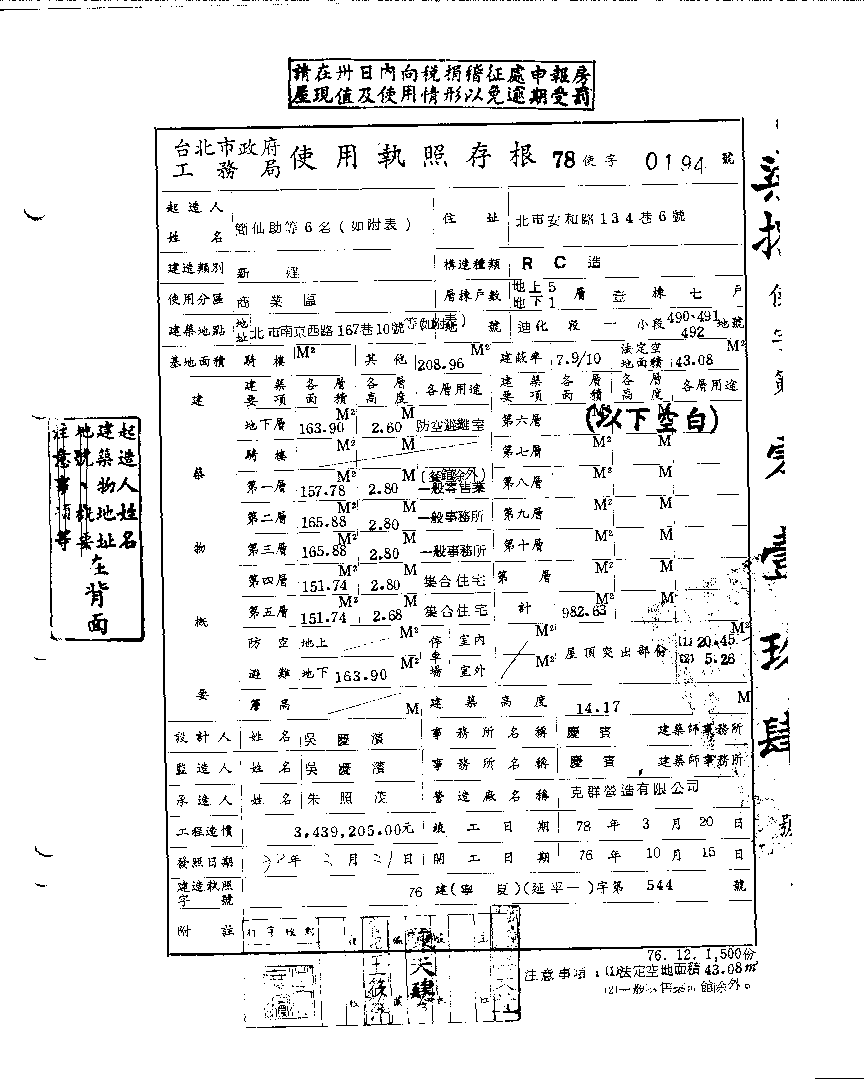 請在卅日內向稅捐稽征處申報房
屋現值及使用情形以免逾期受罰
台北市政府工務局 使用執照存根 78使字 0194 號
起造人姓名 簡仙助等6名(如附表) 住址 北市安和路134巷6號
建造類別 新建 構造種類 RC造
使用分區 商業區 層棟戶數 地上5地下1層 壹棟七戶
建築地點 地址 北市南京西路167巷10號等(如附表) 地號 迪化段一小段490、491 492地號
基地面積 騎樓 M² 其他 208.96 M² 建蔽率 7.9/10 法定空地面積 43.08 M²
建築物概要 建築要項 各層面積 各層高度 各層用途 建築要項 各層面積 各層高度 各層用途
地下層 163.90 M² 2.60 M 防空避難室 第六層 M² M (以下空白)
騎樓 M² M 第七層 M² M
第一層 157.78 M² 2.80 M 一般零售業(餐館除外) 第八層 M² M
第二層 165.88 M² 2.80 M 一般事務所 第九層 M² M
第三層 165.88 M² 2.80 M 一般事務所 第十層 M² M
第四層 151.74 M² 2.80 M 集合住宅 第 層 M² M
第五層 151.74 M² 2.68 M 集合住宅 計 982.63 M² M
防空避難 地上 M² 停車場 室內 M² 屋頂突出部份 (1)20.45 (2)5.28 M²
地下 163.90 M² 室外 M²
簷高 M 建築高度 14.17 M
設計人 姓名 吳慶濱 事務所名稱 慶賓 建築師事務所
監造人 姓名 吳慶濱 事務所名稱 慶賓 建築師事務所
承造人 姓名 朱照茂 營造廠名稱 克群營造有限公司
工程造價 3,439,205.00元 竣工日期 78年3月20日
發照日期 年 月 日 開工日期 76年10月15日
建造執照字號 76建(寧夏)(延平一)字第 544 號
附註
76.12.1,500份
注意事項:(1)法定空地面積43.08㎡
(2)一般零售業餐館除外。
起造人姓名
建築物地址
地號、概要
注意事項等
在背面
使字第
壹玖肆號